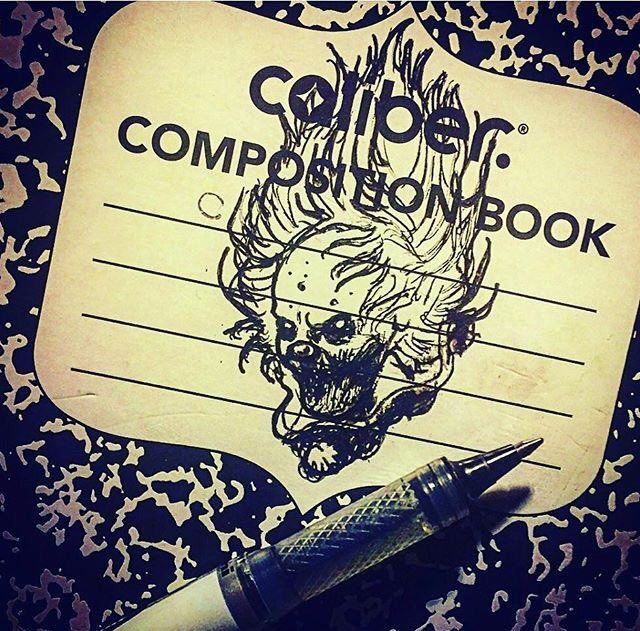 caliber.®
COMPOSITION BOOK